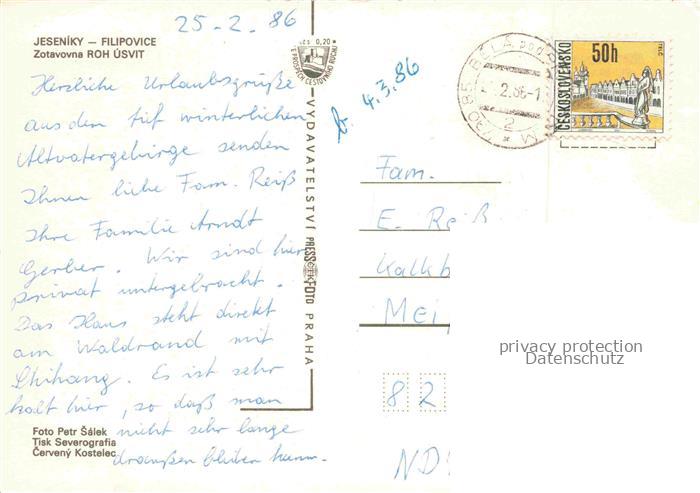 25-2.86
JESENÍKY — FILIPOVICE
Zotavovna ROH ÚSVIT
Herzliche Urlaubsgrüße
aus den tief winterlichen
Altvatergebirge senden
Ihnen liebe Fam. Reiß
Ihre Familie Arndt
Gerber. Wir sind hier
privat untergebracht.
Das Haus steht direkt
am Waldrand mit
Skihang. Es ist sehr
kalt hier, so daß man
nicht sehr lange
draußen bleiben kann.
Foto Petr Šálek
Tisk Severografia
Červený Kostelec
Kčs 0,20
VE PROSPĚCH CESTOVNÍHO RUCHU
VYDAVATELSTVÍ PRESSFOTO PRAHA
4.3.86
790 85 BĚLÁ pod
2.86-1
2
ČESKOSLOVENSKO
50h
TELČ
Fam.
E. Reiß
Kalkb
Mei
82
ND
privacy protection
Datenschutz